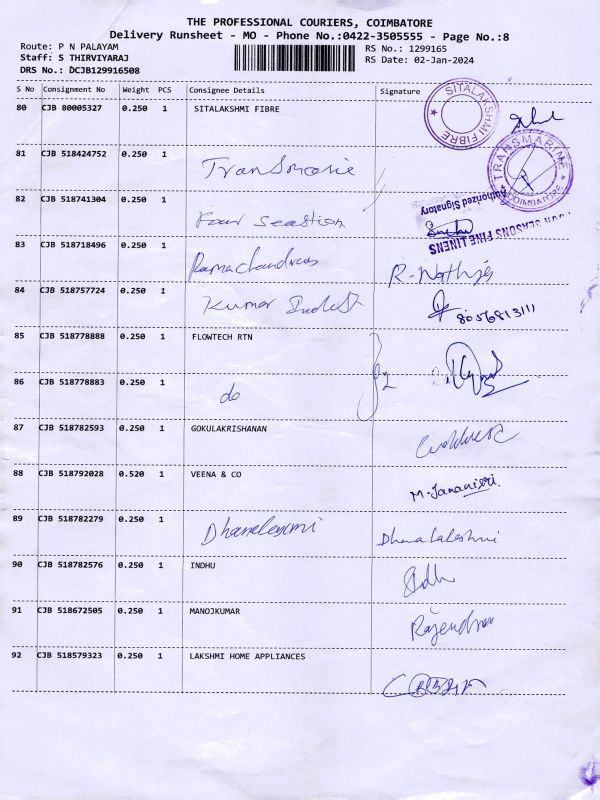 THE PROFESSIONAL COURIERS, COIMBATORE
Delivery Runsheet - MO - Phone No.:0422-3505555 - Page No.:8
Route: P N PALAYAM RS No.: 1299165
Staff: S THIRVIYARAJ RS Date: 02-Jan-2024
DRS No.: DCJB129916508
S No Consignment No Weight PCS Consignee Details Signature
80 CJB 80005327 0.250 1 SITALAKSHMI FIBRE
SITALAKSHMI FIBRE
81 CJB 518424752 0.250 1
TRANSMARINE COIMBATORE
82 CJB 518741304 0.250 1 Four Seastion
Authorized Signatory
SEASONS FINE LINENS
83 CJB 518718496 0.250 1 Ramachandran
84 CJB 518757724 0.250 1 Kumar 8056813111
85 CJB 518778888 0.250 1 FLOWTECH RTN
86 CJB 518778883 0.250 1 do
87 CJB 518782593 0.250 1 GOKULAKRISHANAN
88 CJB 518792028 0.520 1 VEENA & CO
89 CJB 518782279 0.250 1 Dhanalaxmi Dhanalakshmi
90 CJB 518782576 0.250 1 INDHU
91 CJB 518672505 0.250 1 MANOJKUMAR Rajendran
92 CJB 518579323 0.250 1 LAKSHMI HOME APPLIANCES